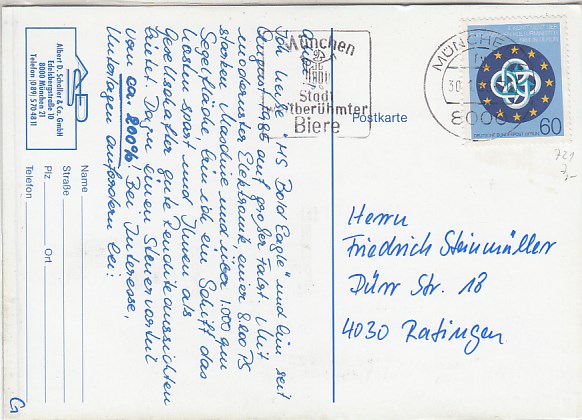 Albert D. Schaller & Co. GmbH
Elsterbergstraße 10
8000 München 21
Telefon (089) 570 48 11
Name
Straße
Plz
Ort
Telefon
Ich heiße "MS Bold Eagle" und bin seit
August 1985 auf großer Fahrt. Mit
modernster Elektronik, einer 8.800 PS
starken Maschine und über 1.000 qm
Segelfläche bin ich ein Schiff das
Kosten spart und Ihnen als
Gesellschafter gute Renditeaussichten
bietet. Dazu einen Steuervorteil
von ca. 200%! Bei Interesse,
Unterlagen anfordern bei:
München
Stadt
weltberühmter
Biere
Postkarte
MÜNCHEN
30.
8000
DEUTSCHE BUNDESPOST BERLIN
60
721
7,-
Herrn
Friedrich Steinmüller
Dürr Str. 18
4030 Ratingen